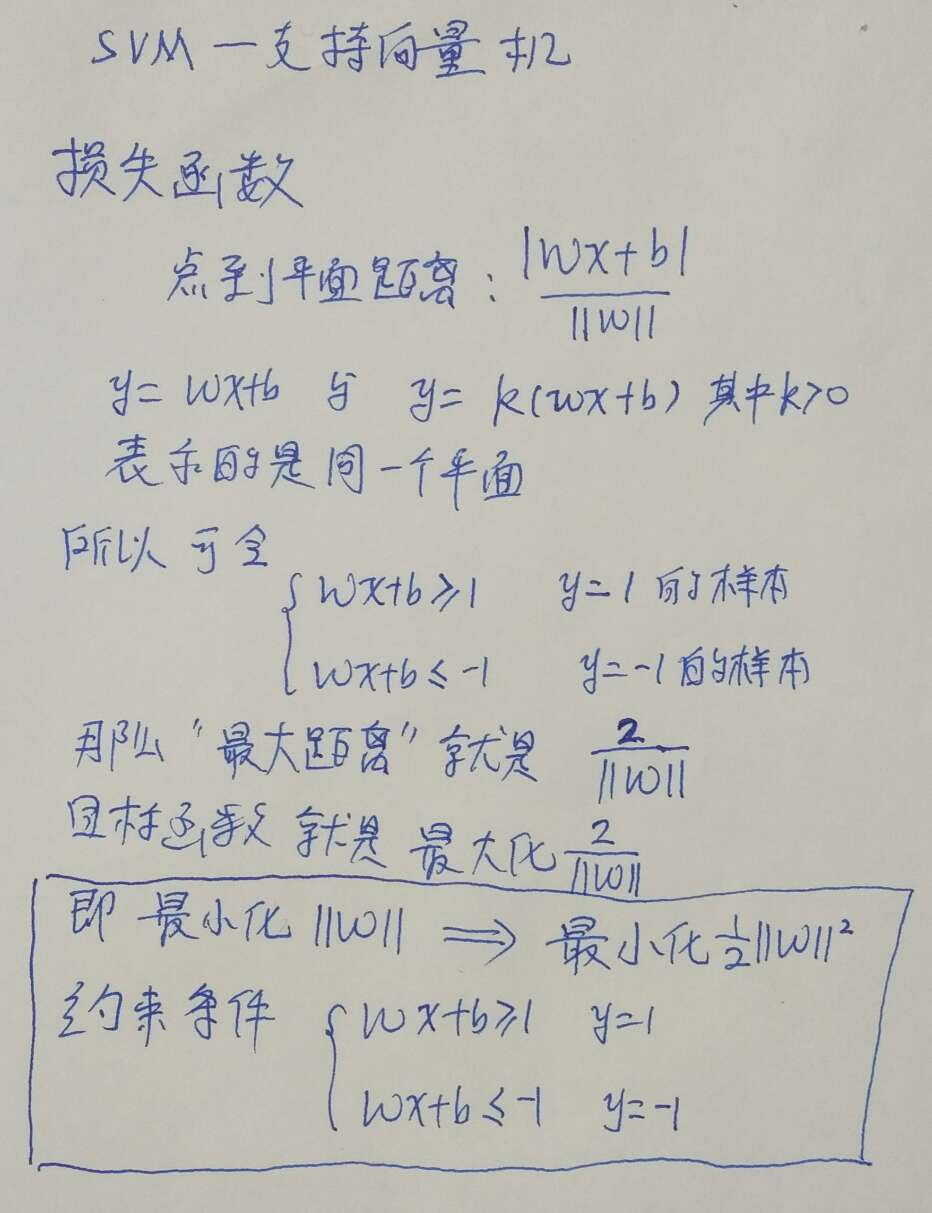 SVM — 支持向量机
损失函数
点到平面距离: |wx+b| / ||w||
y = wx+b 与 y = k(wx+b) 其中k>0
表示的是同一个平面
所以可令
{ wx+b ≥ 1 y=1 的样本
wx+b ≤ -1 y=-1 的样本
那么 "最大距离" 就是 2 / ||w||
目标函数 就是 最大化 2 / ||w||
即 最小化 ||w|| ⟹ 最小化 1/2 ||w||²
约束条件 { wx+b ≥ 1 y=1
wx+b ≤ -1 y=-1